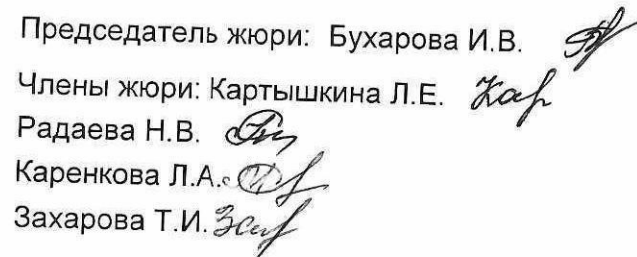 Председатель жюри: Бухарова И.В.
Члены жюри: Картышкина Л.Е. Кар
Радаева Н.В.
Каренкова Л.А.
Захарова Т.И. Зах